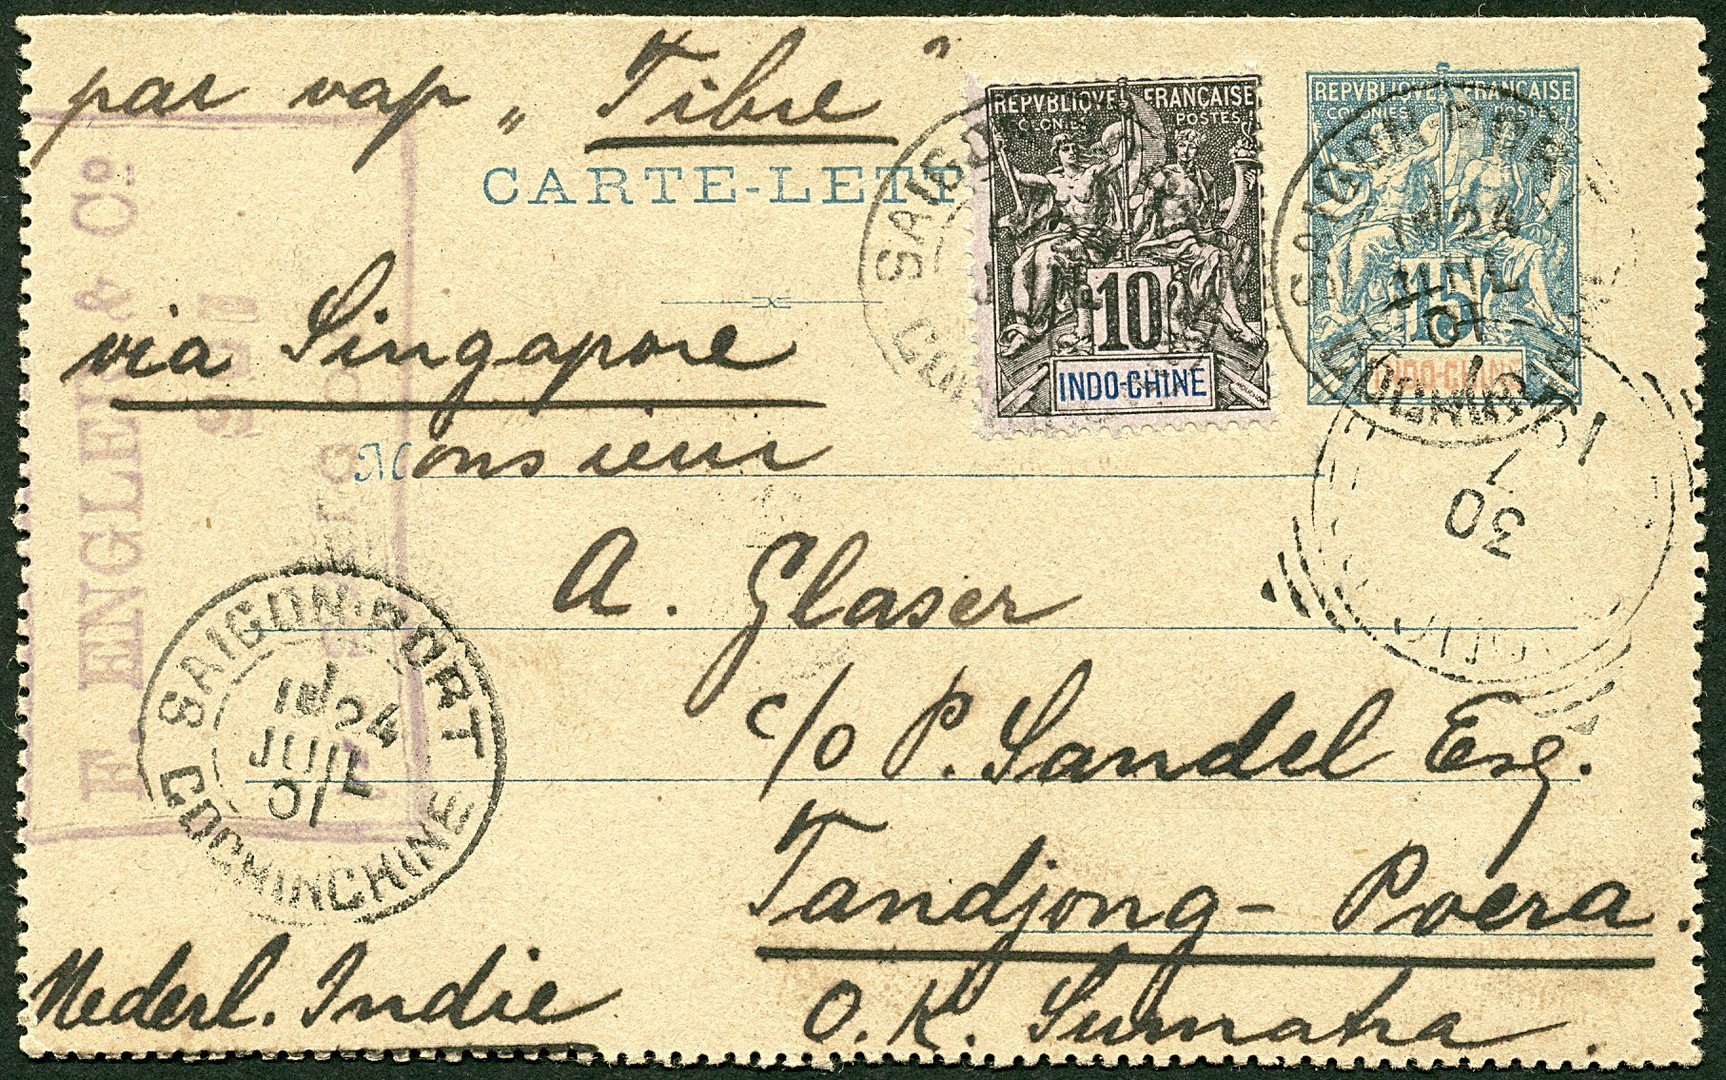 par vap „Tibre"
CARTE-LETT
via Singapore
Monsieur
A. Glaser
c/o P. Sandel Esq.
Tandjong-Poera.
O. K. Sumatra.
Nederl. Indie
REPVBLIQVE FRANÇAISE
COLONIES POSTES
10
INDO-CHINE
REPVBLIQVE FRANÇAISE
COLONIES
15
INDO-CHINE
SAIGON
SAIGON PORT
24
JUIL
01
COCHINCHINE
SAIGON-PORT
24
JUIL
01
COCHINCHINE
30
7
F. ENGLER & Co